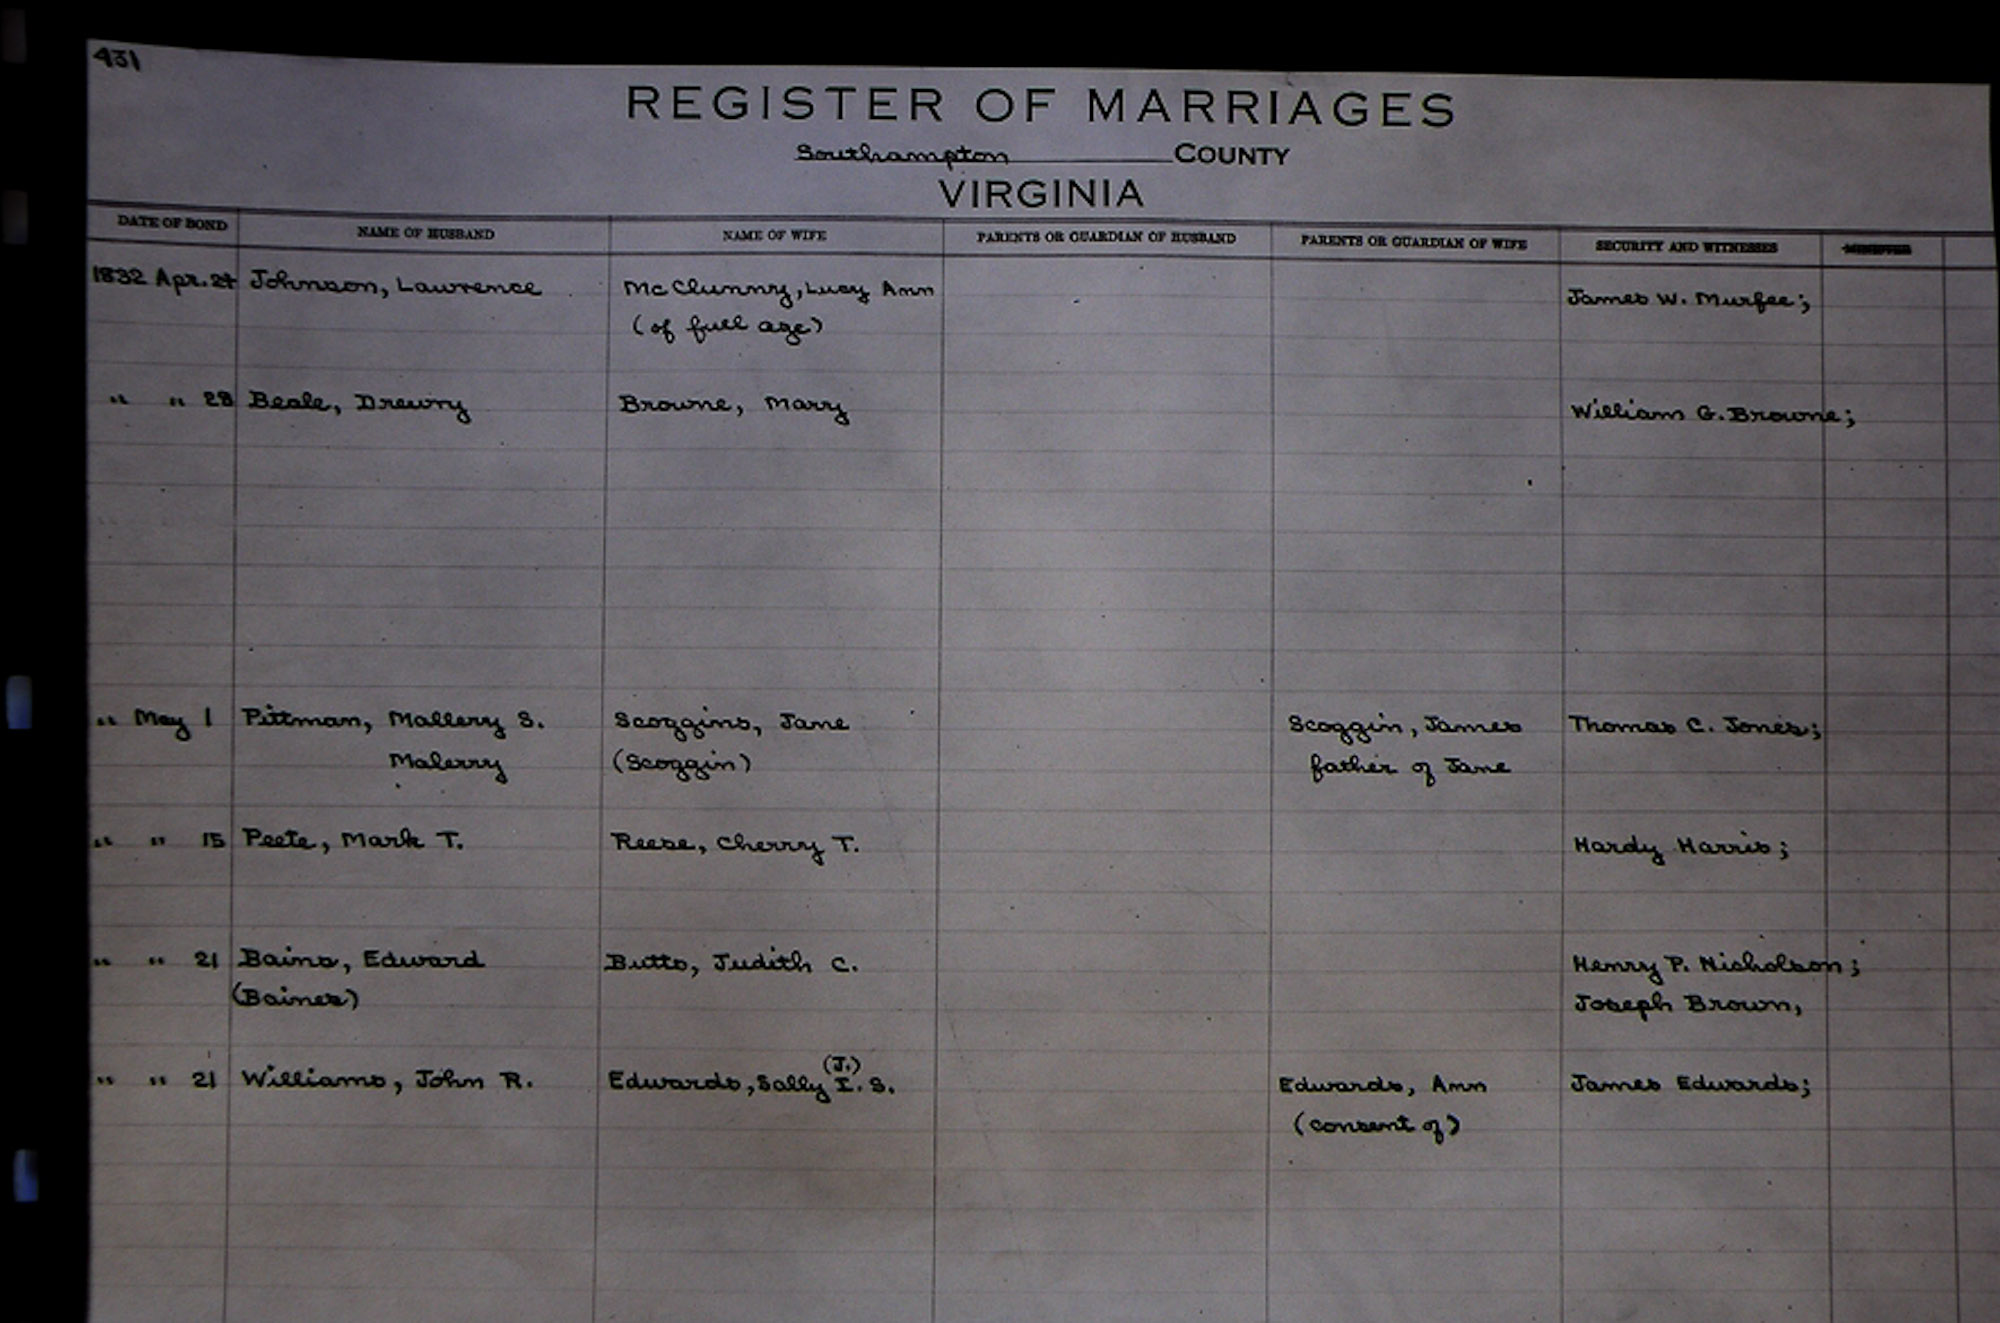 431
REGISTER OF MARRIAGES
Southampton COUNTY
VIRGINIA
DATE OF BOND NAME OF HUSBAND NAME OF WIFE PARENTS OR GUARDIAN OF HUSBAND PARENTS OR GUARDIAN OF WIFE SECURITY AND WITNESSES MINISTER
1832 Apr. 24 Johnson, Lawrence McClunny, Lucy Ann James W. Murfee;
(of full age)
" " 28 Beale, Drewry Browne, Mary William G. Browne;
" May 1 Pittman, Mallery S. Scoggins, Jane Scoggin, James Thomas C. Jones;
Malerry (Scoggin) father of Jane
" " 15 Peete, Mark T. Reese, Cherry T. Hardy Harris;
" " 21 Bains, Edward Butts, Judith C. Henry P. Nicholson;
(Baines) Joseph Brown,
(J.)
" " 21 Williams, John R. Edwards, Sally I. S. Edwards, Ann James Edwards;
(consent of)